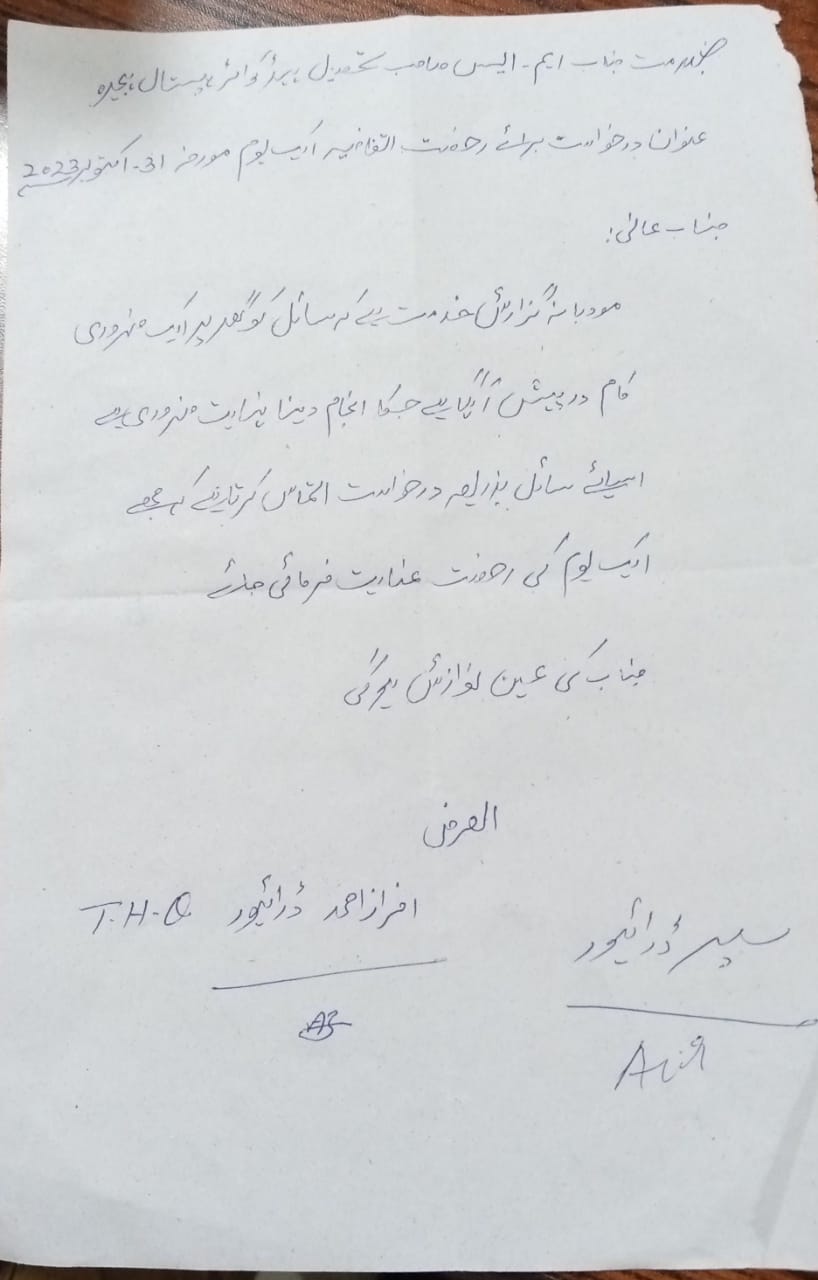 بخدمت جناب ایم۔ ایس صاحب تحصیل ہیڈ کوائر ہسپتال ہجیرہ
عنوان درخواست برائے رخصت اتفاقیہ ایک یوم مورخہ 31۔ اکتوبر 2023
جناب عالی:
مودبانہ گزارش خدمت ہے کہ سائل کو گھر پر ایک ضروری
کام درپیش آ گیا ہے جسکا انجام دینا نہایت ضروری ہے
اسلئے سائل بذریعہ درخواست التماس کرتا ہے کہ مجھے
ایک یوم کی رخصت عنایت فرمائی جائے
جناب کی عین نوازش ہو گی
العرض
افراز احمد ڈرائیور T.H.Q
ڈرائیور